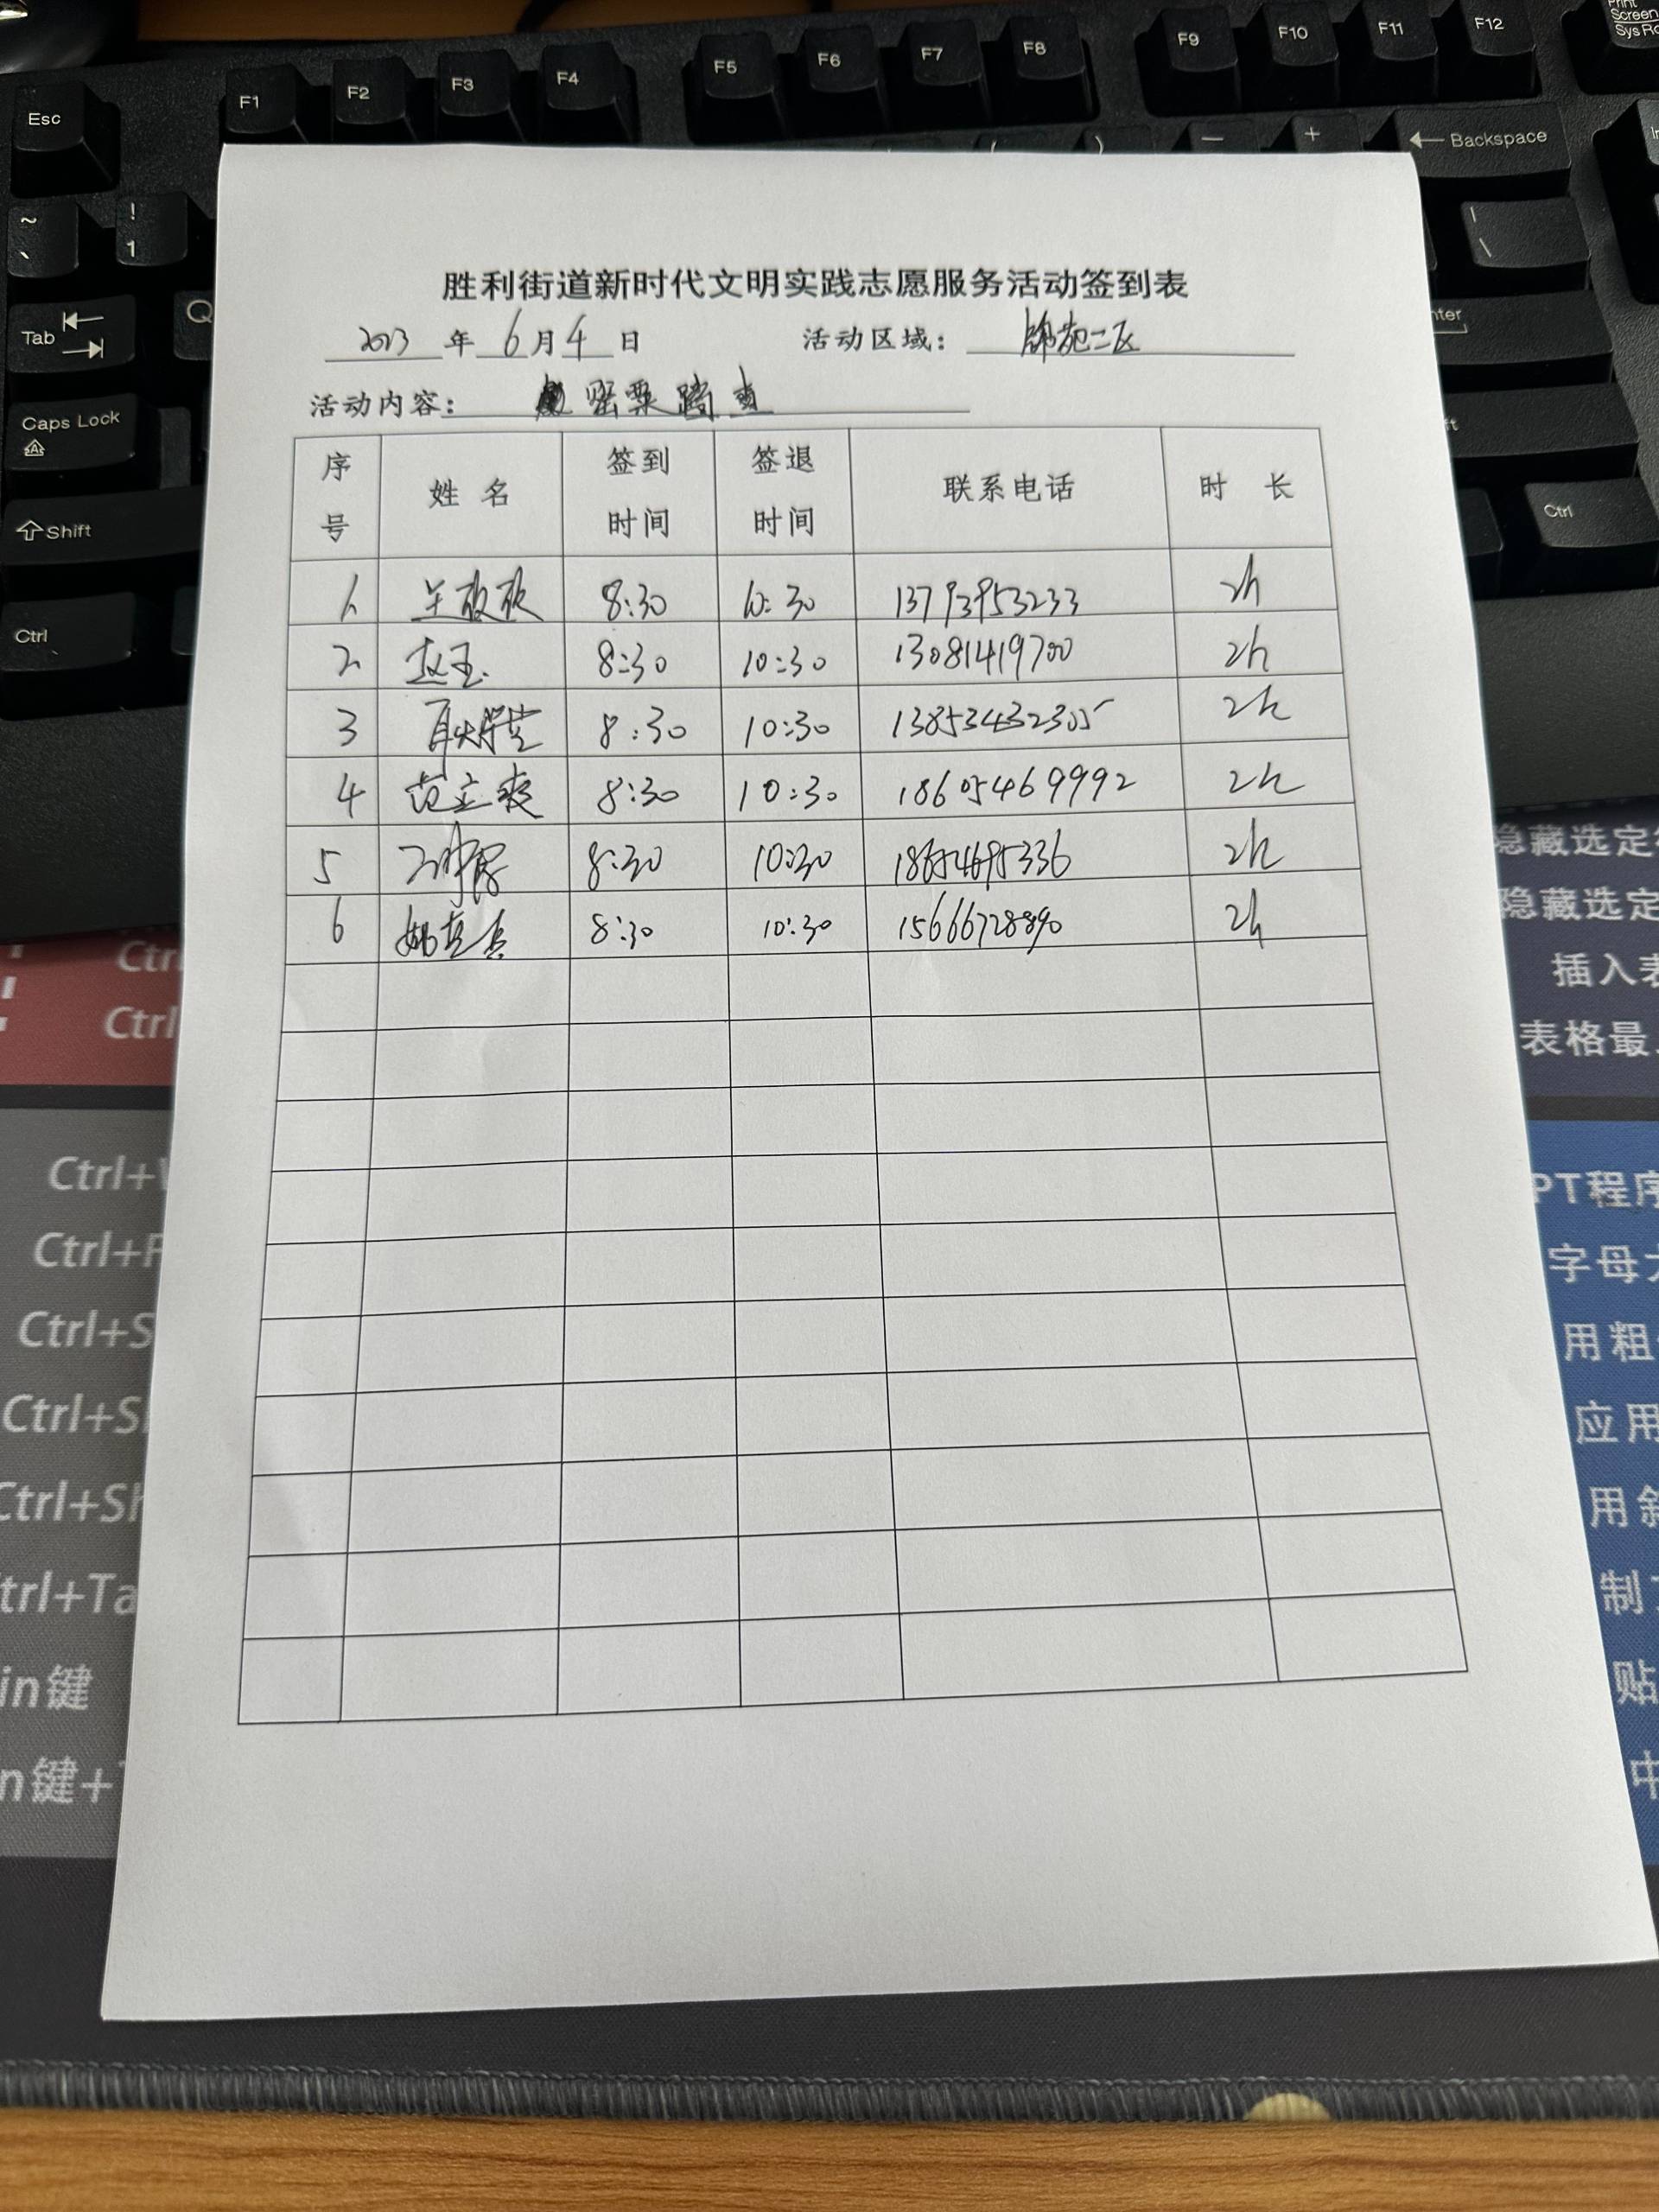 Esc F1 F2 F3 F4 F5 F6 F7 F8 F9 F10 F11 F12 Print Screen
~ ` ! 1 ( ) — + ← Backspace | \
Tab Q
Caps Lock A
Shift
Ctrl
Ctrl
胜利街道新时代文明实践志愿服务活动签到表
2023 年 6 月 4 日 活动区域： 锦苑二区
活动内容： 罂粟踏查
序号 姓 名 签到时间 签退时间 联系电话 时 长
1 8:30 10:30 13793953233 2h
2 赵玉 8:30 10:30 13081419700 2h
3 8:30 10:30 13853432305 2h
4 范立爽 8:30 10:30 18605469992 2h
5 8:30 10:30 18654695336 2h
6 8:30 10:30 15666728890 2h
Ctrl
Ctrl
Ctrl+
Ctrl+F
Ctrl+S
Ctrl+S
Ctrl+Sh
trl+Ta
in键
n键+
隐藏选定
隐藏选定
插入
表格最
PT程序
字母
用粗
应用
用斜
制
贴
中